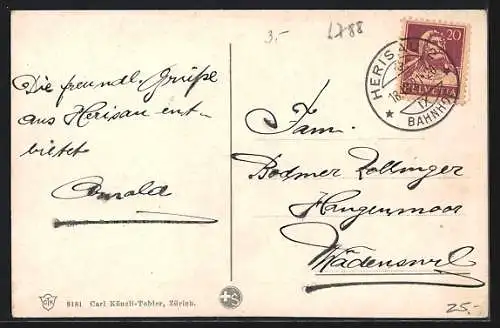 3.-
1788
20
HELVETIA
HERISAU
18. IX
BAHNHOF
Die freundl. Grüße
aus Herisau ent-
bietet
Arnold
Fam.
Bodmer Zollinger
Hangenmoor
Wädenswil
8181 Carl Künzli-Tobler, Zürich.
25.-